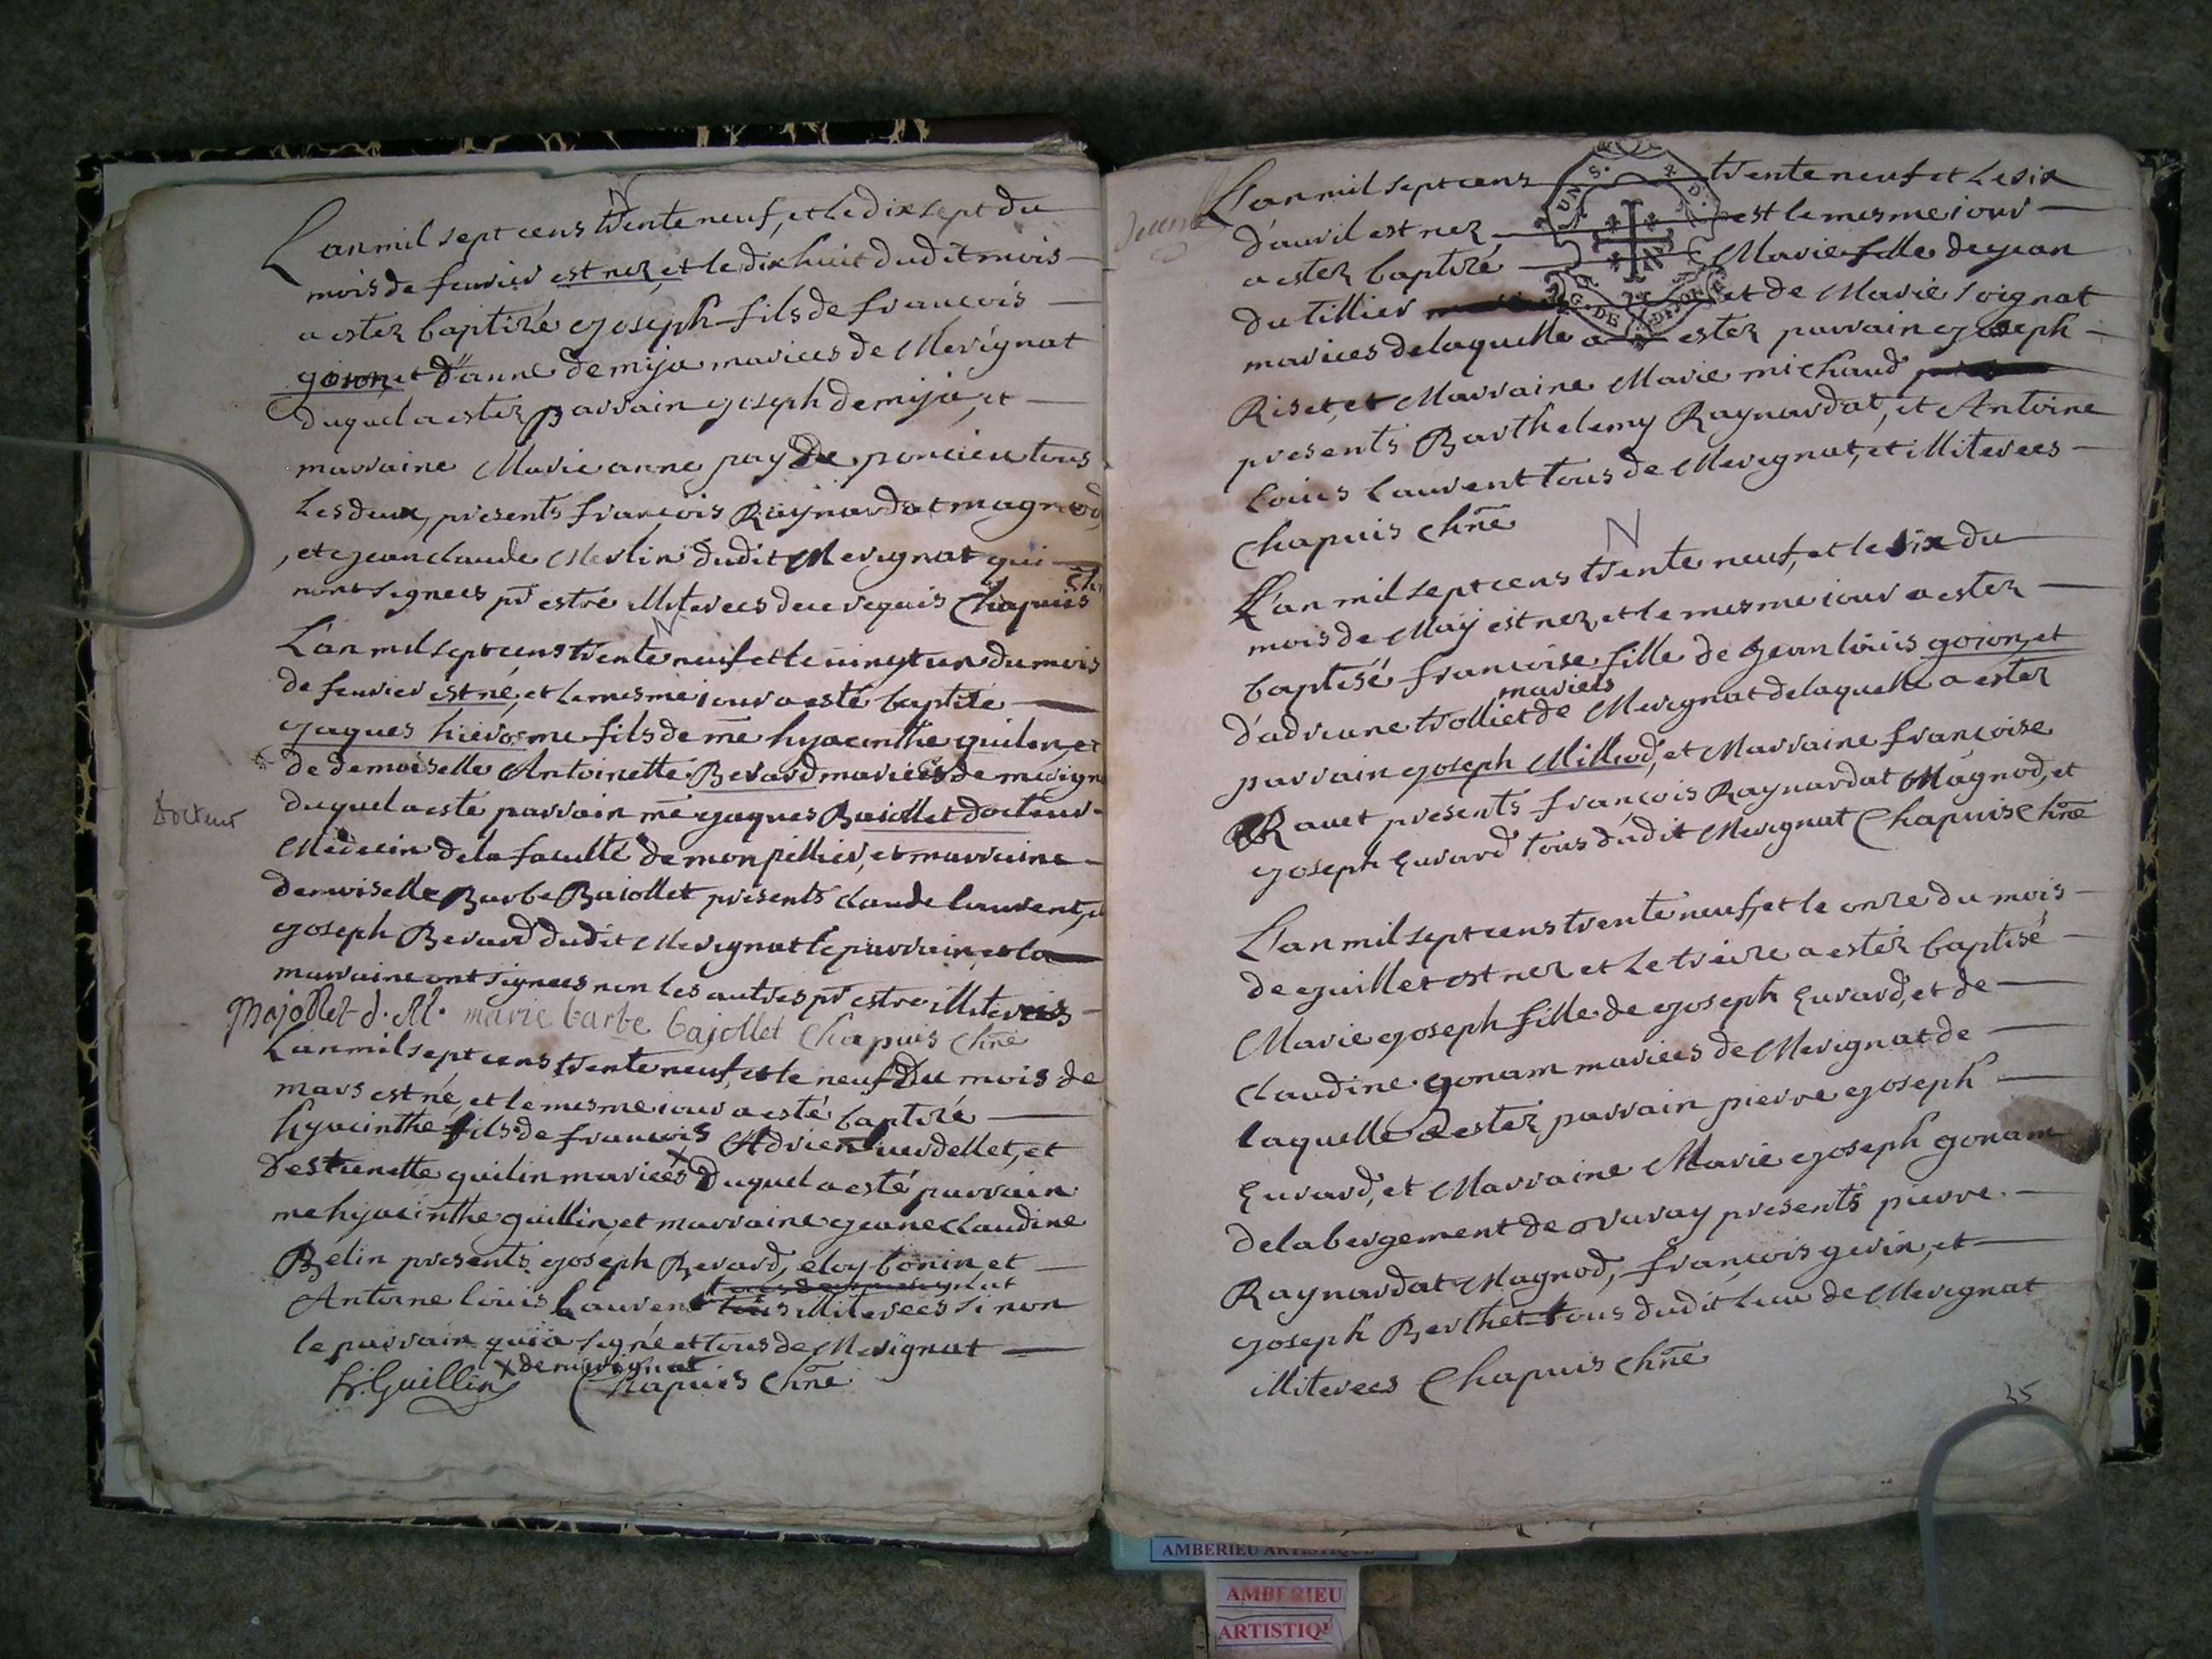 N
L'an mil sept cens trente neuf, et le dix sept du
mois de feuvier est nez, et le dix huit dudit mois
a ester baptizé joseph fils de francois
goion, et d'anne demija mariees de Merignat
duquel a ester parrain joseph demija, et
marraine Marie anne pay de poncieu tous
les deux, presents françois Raynardat magnod
, et jean claude Merlin dudit Merignat qui
nont signees pr estre illiterees de ce requis Chapuis
N
L'an mil sept cens trente neuf et le vingt un du mois
de feuvier est né, et le mesme jour a esté baptité
jaques hierosme fils de me hyacinthe guilin, et
de demoiselle Antoinette Berard mariées de merigna
Docteur
duquel a esté parrain me jaques Baiollet docteur
Médecin de la faculté de monpellier, et marraine
demoiselle Barbe Baiollet présents claude laurent, et
joseph Berard dudit Merignat le parrain, et la
marraine ont signees non les autres pr estre illiterees
Majollet d. M. marie barbe bajollet Chapuis Chne
L'an mil sept cens trente neuf, et le neuf du mois de
mars est né, et le mesme jour a esté baptizé
hyacinthe fils de francois Adrien uerdellet, et
d'estienette guilin mariées x duquel a esté parrain
me hyacinthe guillin, et marraine jeane claudine
Belin presents joseph Berard, eloy bonin et
Antoine louis laurent tous illiterees si non
le parrain qui a signé et tous de Merignat
h. Guillin x de merignat Chapuis Chne
L'an mil sept cens trente neuf et le six
d'avril est nez est le mesme jour
a ester baptizé Marie fille de jean
du tillier et de Marie soignat
mariees de laquelle a ester parrain joseph
Riset, et Marraine Marie michaud
presents Barthelemy Raynardat, et Antoine
louis laurent tous de Merignat, et illiterees
Chapuis Chne
N
L'an mil sept cens trente neuf, et le six du
mois de May est nez, et le mesme jour a ester
baptisé francoise fille de jean louis goion, et
mariees
d'adriane trolliet de Merignat de laquelle a ester
parrain joseph Milliod, et Marraine françoise
Rauet presents françois Raynardat Magnod, et
joseph Eurard tous dudit Merignat Chapuis Chne
L'an mil sept cens trente neuf, et le onze du mois
de juillet est nez et le treize a ester baptisé
Marie joseph fille de joseph Euvard, et de
claudine gonam mariees de Merignat de
laquelle a ester parrain pierre joseph
Euvard, et Marraine Marie joseph gonam
de labergement de uaray presents pierre
Raynardat Magnod, françois gerin, et
joseph Berthet tous dudit lieu de Merignat
illiterees Chapuis Chne
35
AMBERIEU ARTISTIQUE
AMBERIEU
ARTISTIQ